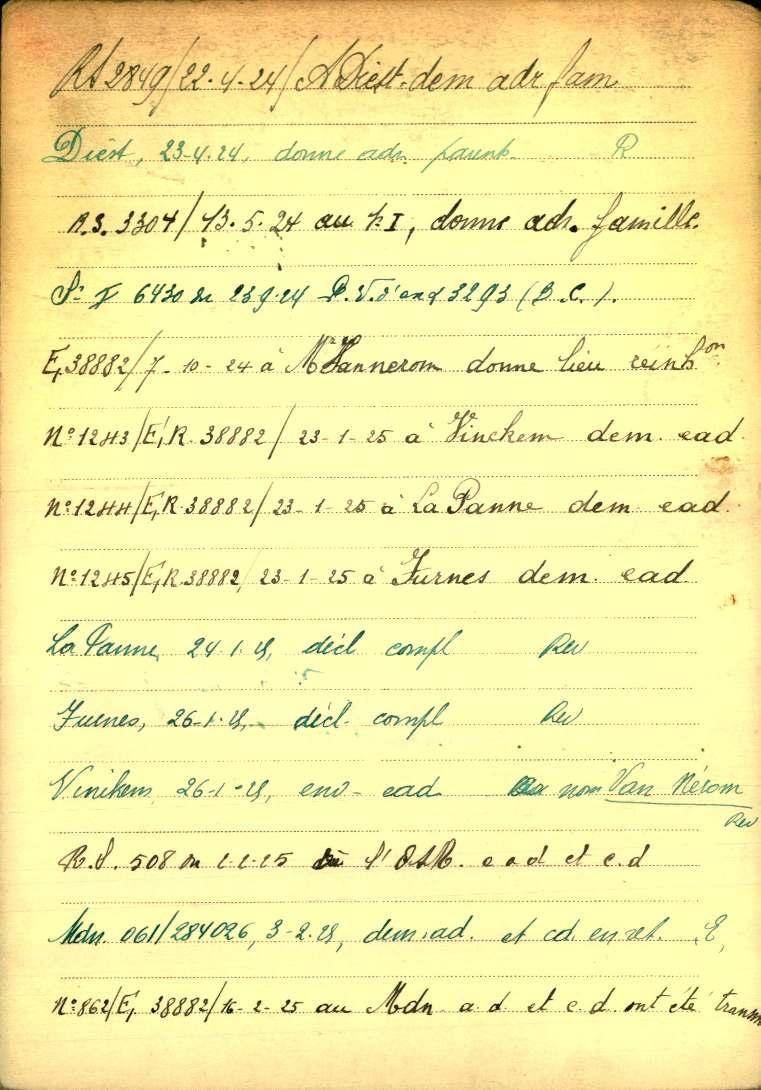 RS 2849/22-4-24/ A Diest. dem adr fam
Diest, 23-4-24, donne adr. parents. R
R.S. 3304/13.5.24 au 1r I, donne adr. famille.
6430 du 23 9.24 P.V. d'exd 3293 (B.C.).
E, 38882/7-10-24 à Mr Vannerom donne lieu réinhon.
No 1243/E, R. 38882/23-1-25 à Vinckem dem. ead.
No 1244/E, R. 38882/23-1-25 à La Panne dem. ead.
No 1245/E, R. 38882/23-1-25 à Furnes dem. ead
La Panne, 24.1.25, décl compl Rev
Furnes, 26-1-25, décl. compl Rev
Vinckem, 26-1-25, env- ead nom Van Nérom
Rev
R.S. 508 du 2-2-25 à l'
e a d et c.d
Mdn. 061/284026, 3-2.25, dem. ad. et cd. en ret. E,
No 862/E, 38882/16-2-25 au Mdn a.d et c.d. ont été transm